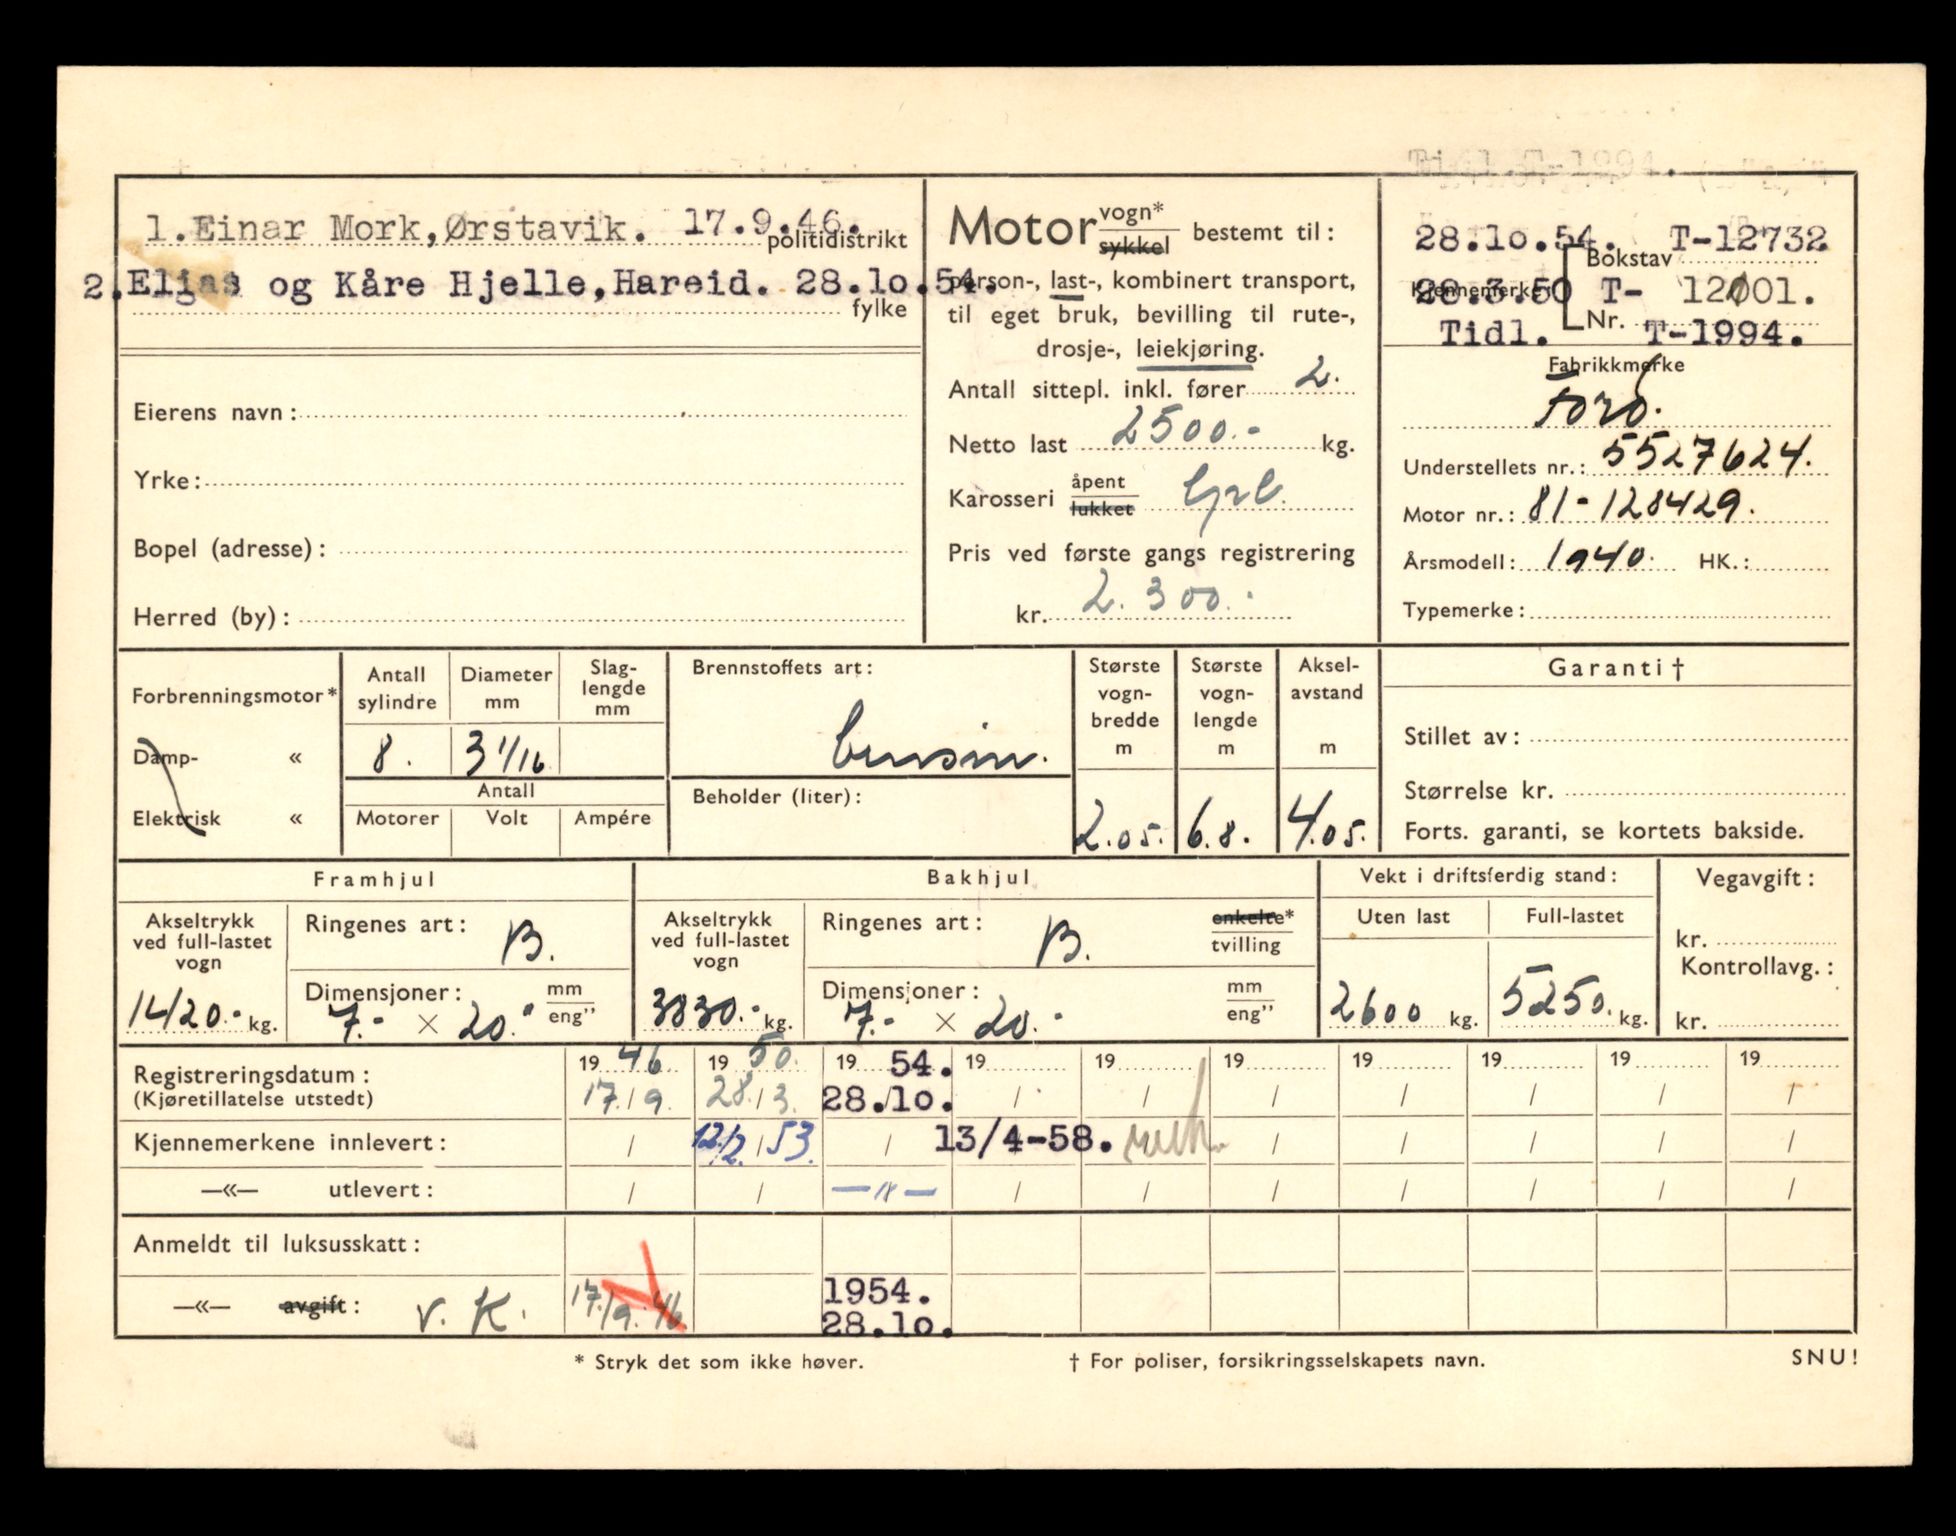 Tidl. T-1994.
1.Einar Mork,Ørstavik. 17.9.46.
politidistrikt
2.Elias og Kåre Hjelle,Hareid. 28.lo.54.
fylke
Eierens navn:
Yrke:
Bopel (adresse):
Herred (by):
Motor vogn* sykkel bestemt til:
person-, last-, kombinert transport,
til eget bruk, bevilling til rute-,
drosje-, leiekjøring.
Antall sittepl. inkl. fører 2.
Netto last 2500.- kg.
Karosseri åpent lukket
Pris ved første gangs registrering
kr. 2.300.-
28.lo.54. T-12732
Bokstav
Kjennemerke
28.3.50 T- 12001.
Nr.
Tidl. T-1994.
Fabrikkmerke
Ford.
Understellets nr.: 5527624.
Motor nr.: 81-128429.
Årsmodell: 1940. HK.:
Typemerke:
Forbrenningsmotor*
Damp- «
Elektrisk «
Antall sylindre
8.
Diameter mm
3 1/16
Slaglengde mm
Antall
Motorer Volt Ampére
Brennstoffets art:
bensin.
Beholder (liter):
Største vognbredde m
2.05.
Største vognlengde m
6.8.
Akselavstand m
4.05.
Garanti†
Stillet av:
Størrelse kr.
Forts. garanti, se kortets bakside.
Framhjul
Akseltrykk ved full-lastet vogn
1420.- kg.
Ringenes art: B.
Dimensjoner: mm eng"
7.- × 20."
Bakhjul
Akseltrykk ved full-lastet vogn
3830.- kg.
Ringenes art: B. enkelte* tvilling
Dimensjoner: mm eng"
7.- × 20.-
Vekt i driftsferdig stand:
Uten last Full-lastet
2600 kg. 5250. kg.
Vegavgift:
kr.
Kontrollavg.:
kr.
19 46 19 50. 19 54. 19 19 19 19 19 19 19
Registreringsdatum:
(Kjøretillatelse utstedt) 17./9. 28./3. 28./lo. / / / / / / /
Kjennemerkene innlevert: / 12/2. /53. / 13/4-58. / / / / /
—«— utlevert: / / —"— / / / / / / /
Anmeldt til luksusskatt:
—«— avgift: v. K. 17./9.'46 1954.
28.lo.
* Stryk det som ikke høver.
† For poliser, forsikringsselskapets navn.
SNU!